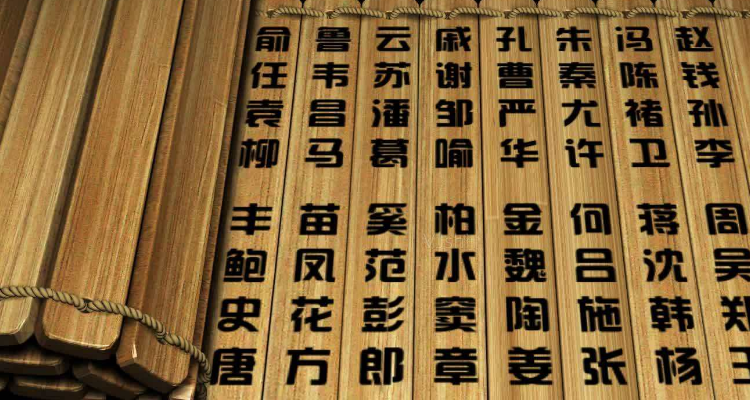 赵钱孙李周吴郑王
冯陈褚卫蒋沈韩杨
朱秦尤许何吕施张
孔曹严华金魏陶姜
戚谢邹喻柏水窦章
云苏潘葛奚范彭郎
鲁韦昌马苗凤花方
俞任袁柳丰鲍史唐